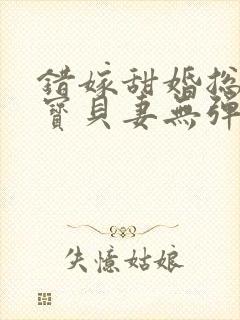 错嫁甜婚总
寶貝妻無彈
失憶姑娘